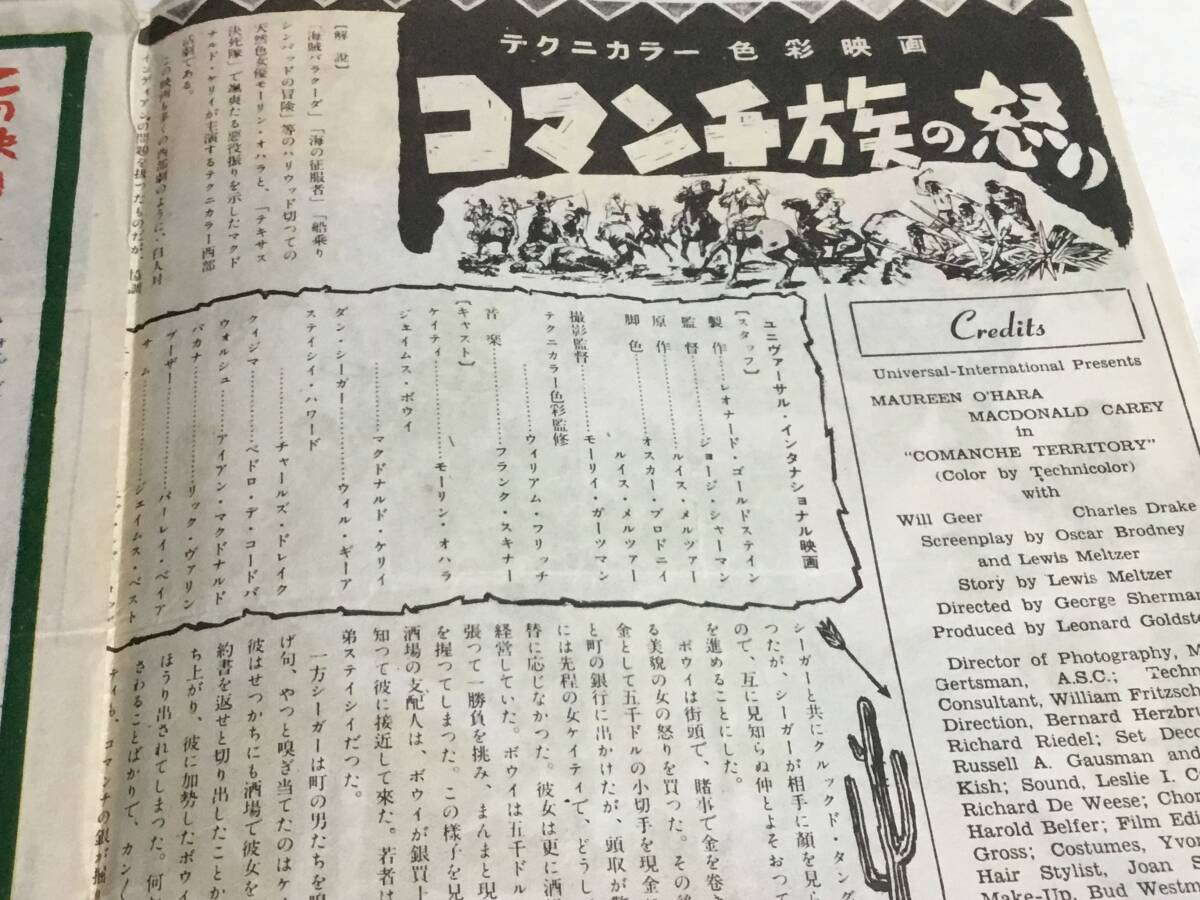 テクニカラー 色彩映画
コマンチ族の怒り
〔解説〕
「海賊バラクーダ」「海の征服者」「船乗り
シンバッドの冒険」等のハリウッド切っての
天然色女優モーリン・オハラと、「テキサス
決死隊」で颯爽たる悪役振りを示したマクド
ナルド・ケリイが主演するテクニカラー西部
活劇である。
この映画も多くの西部劇のように、白人対
インディアンの問題を扱つたものだが、
ユニヴァーサル・インタナショナル映画
〔スタッフ〕
製作……………レオナード・ゴールドステイン
監督……………ジョージ・シャーマン
原作……………ルイス・メルツァー
脚色……………オスカー・ブロドニイ
ルイス・メルツァー
撮影監督……………モーリイ・ガーツマン
テクニカラー色彩監修
……………ウィリアム・フリッチ
音楽……………フランク・スキナー
〔キャスト〕
ケイティ……………モーリン・オハラ
ジェイムス・ボウイ
……………マクドナルド・ケリイ
ダン・シーガー……………ウィル・ギーア
ステイシイ・ハワード
……………チャールズ・ドレイク
クィジマ……………ペドロ・デ・コードバ
ウォルシュ……………アイアン・マクドナルド
パカナ……………リック・ヴァリン
ブーザー……………パーレイ・ベイア
サム……………ジェイムス・ベスト
シーガーと共にクルックド・タング
つたが、シーガーが相手に顔を見
ので、互に見知らぬ仲とよそおつて
を進めることにした。
ボウイは街頭で、賭事で金を巻き
る美貌の女の怒りを買つた。その後
金として五千ドルの小切手を現金
と町の銀行に出かけたが、頭取が
には先程の女ケイティで、どうし
替に応じなかつた。彼女は更に酒
経営していた。ボウイは五千ドル
張つて一勝負を挑み、まんまと現
を握つてしまつた。この様子を見
酒場の支配人は、ボウイが銀買上
知つて彼に接近して来た。若者は
弟ステイシイだつた。
一方シーガーは町の男たちを
げ句、やつと嗅ぎ当てたのはケ
彼はせつかちにも酒場で彼女を
約書を返せと切り出したことか
ち上がり、彼に加勢したボウイ
ほうり出されてしまつた。何
さわることばかりで、カン
ティも、コマンチの銀が
Credits
Universal-International Presents
MAUREEN O'HARA
MACDONALD CAREY
in
"COMANCHE TERRITORY"
(Color by Technicolor)
with
Will Geer Charles Drake
Screenplay by Oscar Brodney
and Lewis Meltzer
Story by Lewis Meltzer
Directed by George Sherman
Produced by Leonard Goldste
Director of Photography, M
Gertsman, A.S.C.; Techn
Consultant, William Fritzsch
Direction, Bernard Herzbru
Richard Riedel; Set Deco
Russell A. Gausman and
Kish; Sound, Leslie I. C
Richard De Weese; Chor
Harold Belfer; Film Edi
Gross; Costumes, Yvon
Hair Stylist, Joan S
Make-Up, Bud Westm